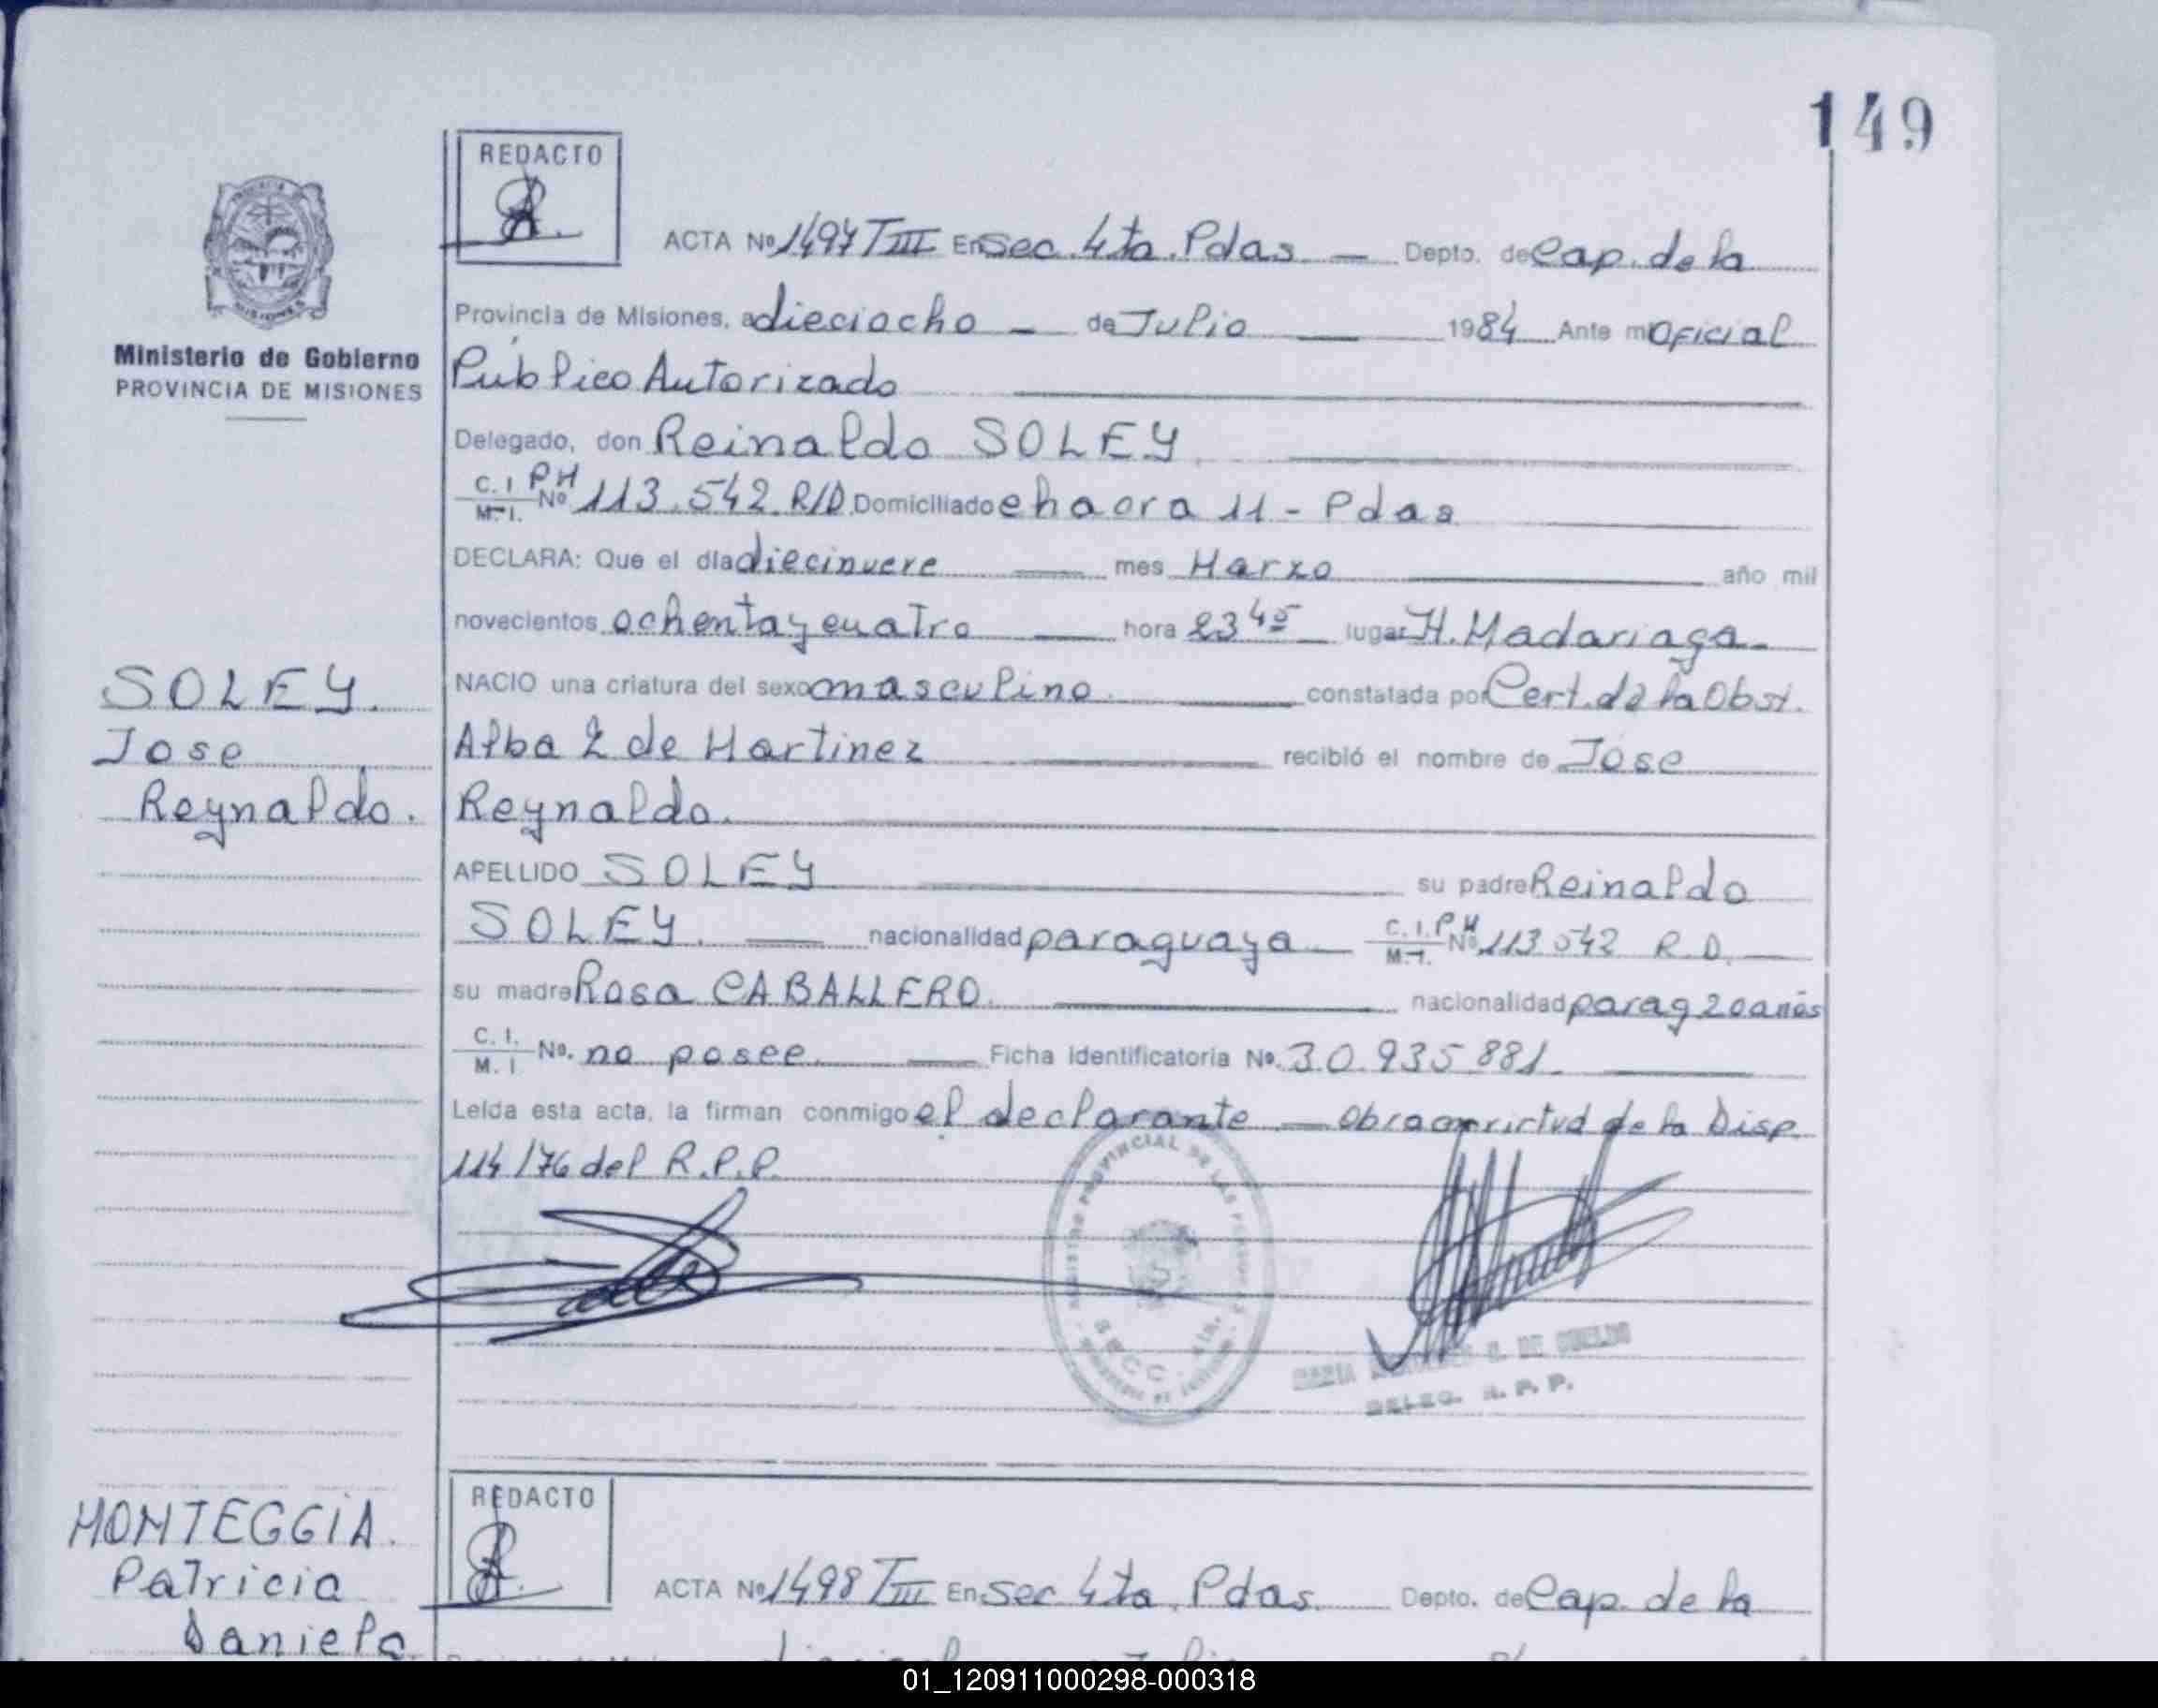 149
REDACTO
ACTA Nº 1497 TIII En Sec. 4ta. Pdas. — Depto. de Cap. de la
Provincia de Misiones, a dieciocho — de Julio — 1984 Ante mi Oficial
Ministerio de Gobierno
PROVINCIA DE MISIONES
Público Autorizado
Delegado, don Reinaldo SOLEY
C.I. M.I. PH Nº 113.542 R/D. Domiciliado chacra 11 - Pdas
DECLARA: Que el día diecinueve — mes Marzo — año mil
novecientos ochenta y cuatro — hora 23 45 lugar H. Madariaga
SOLEY.
Jose
Reynaldo.
NACIO una criatura del sexo masculino. — constatada por Cert. de la Obst.
Alba Z de Martinez — recibió el nombre de Jose
Reynaldo.
APELLIDO SOLEY — su padre Reinaldo
SOLEY. — nacionalidad paraguaya — C.I. M.I. PH Nº 113.542 R.D. —
su madre Rosa CABALLERO. — nacionalidad parag 20 años
C.I. M.I Nº. no posee. — Ficha Identificatoria Nº. 30.935.881. —
Leída esta acta, la firman conmigo el declarante — Obra en virtud de la Disp.
114/76 del R.P.P.
REGISTRO PROVINCIAL DE LAS PERSONAS
SECC. 4ta.
MARIA DE
DELEG. R. P. P.
MONTEGGIA.
Patricia
Daniela
REDACTO
ACTA Nº 1498 TIII En Sec 4ta. Pdas. Depto. de Cap. de la
01_120911000298-000318